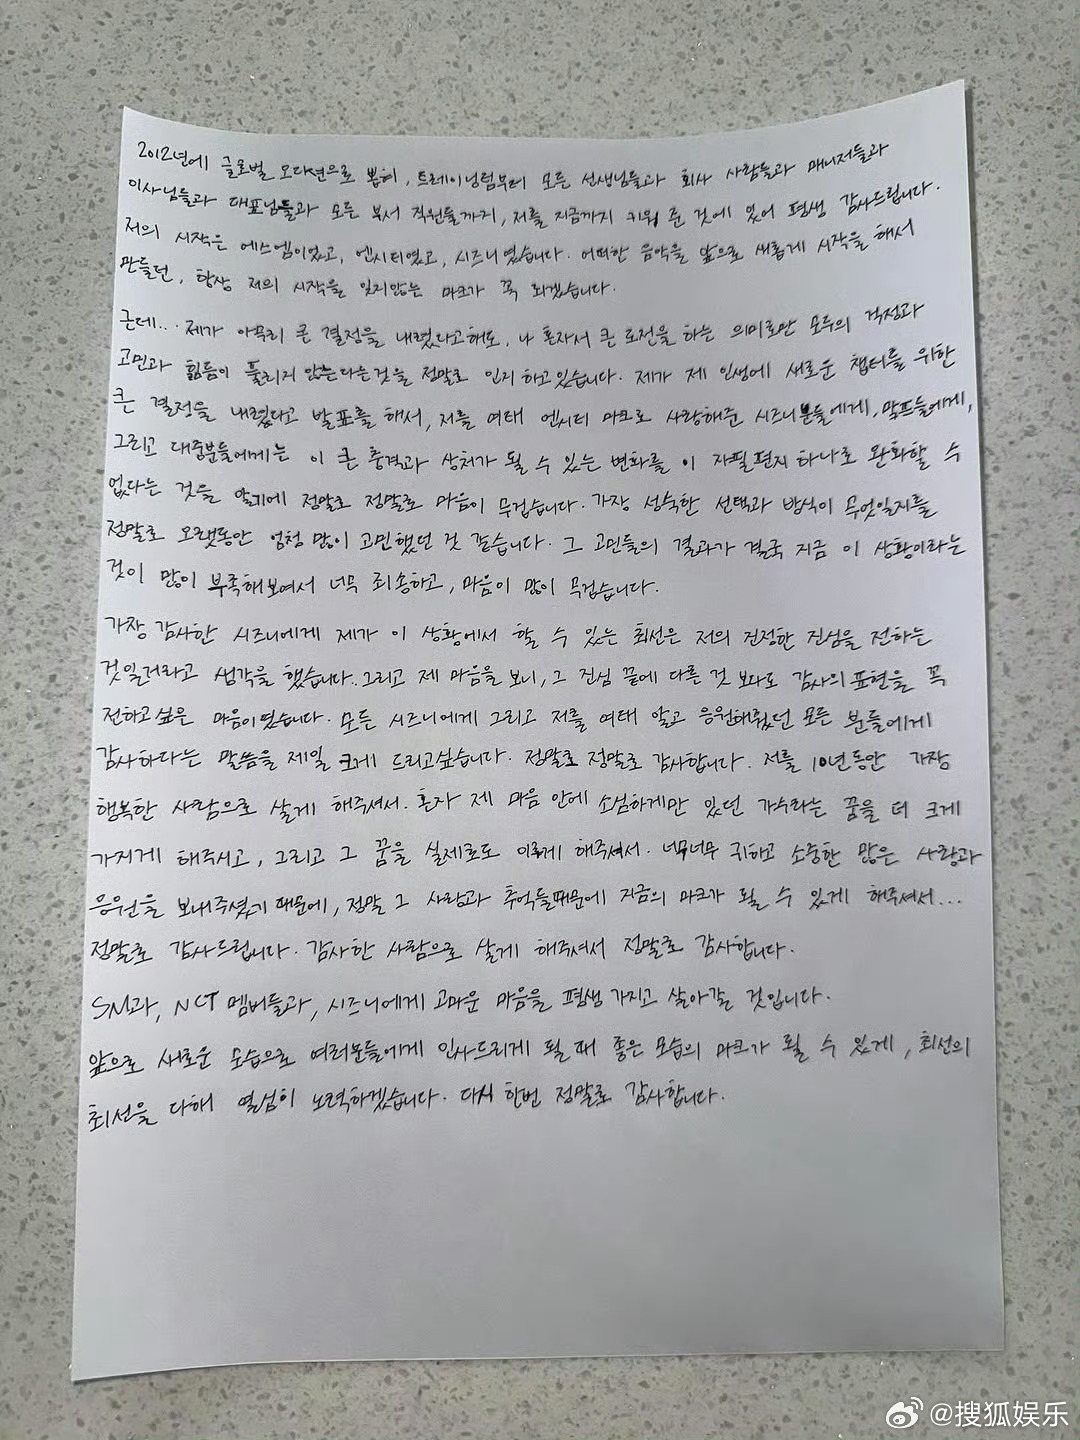 2012년에 글로벌 오디션으로 뽑혀, 트레이닝팀부터 모든 선생님들과 회사 사람들과 매니저들과
이사님들과 대표님들과 모든 부서 직원들까지, 저를 지금까지 키워 준 것에 있어 평생 감사드립니다.
저의 시작은 에스엠이었고, 엔시티였고, 시즈니였습니다. 어떠한 음악을 앞으로 새롭게 시작을 해서
만들던, 항상 저의 시작을 잊지않는 마크가 꼭 되겠습니다.
근데... 제가 아무리 큰 결정을 내렸다고해도, 나 혼자서 큰 도전을 하는 의미로만 모두의 걱정과
고민과 힘듦이 풀리지 않는다는것을 정말로 인지하고있습니다. 제가 제 인생에 새로운 챕터를 위한
큰 결정을 내렸다고 발표를 해서, 저를 여태 엔시티 마크로 사랑해준 시즈니분들에게, 맠프들에게,
그리고 대중분들에게는 이 큰 충격과 상처가 될 수 있는 변화를 이 자필편지 하나로 완화할 수
없다는 것을 알기에 정말로 정말로 마음이 무겁습니다. 가장 성숙한 선택과 방식이 무엇일지를
정말로 오랫동안 엄청 많이 고민했던 것 같습니다. 그 고민들의 결과가 결국 지금 이 상황이라는
것이 많이 부족해보여서 너무 죄송하고, 마음이 많이 무겁습니다.
가장 감사한 시즈니에게 제가 이 상황에서 할 수 있는 최선은 저의 진정한 진심을 전하는
것일거라고 생각을 했습니다. 그리고 제 마음을 보니, 그 진심 끝에 다른 것 보다도 감사의 표현을 꼭
전하고싶은 마음이였습니다. 모든 시즈니에게 그리고 저를 여태 알고 응원해줬던 모든 분들에게
감사하다는 말씀을 제일 크게 드리고싶습니다. 정말로 정말로 감사합니다. 저를 10년동안 가장
행복한 사람으로 살게 해주셔서. 혼자 제 마음 안에 소심하게만 있던 가수라는 꿈을 더 크게
가지게 해주시고, 그리고 그 꿈을 실제로도 이루게 해주셔서. 너무너무 귀하고 소중한 많은 사랑과
응원을 보내주셨기 때문에, 정말 그 사랑과 추억들때문에 지금의 마크가 될 수 있게 해주셔서...
정말로 감사드립니다. 감사한 사람으로 살게 해주셔서 정말로 감사합니다.
SM과, NCT 멤버들과, 시즈니에게 고마운 마음을 평생 가지고 살아갈 것입니다.
앞으로 새로운 모습으로 여러분들에게 인사드리게 될 때 좋은 모습의 마크가 될 수 있게, 최선의
최선을 다해 열심히 노력하겠습니다. 다시 한번 정말로 감사합니다.
@搜狐娱乐